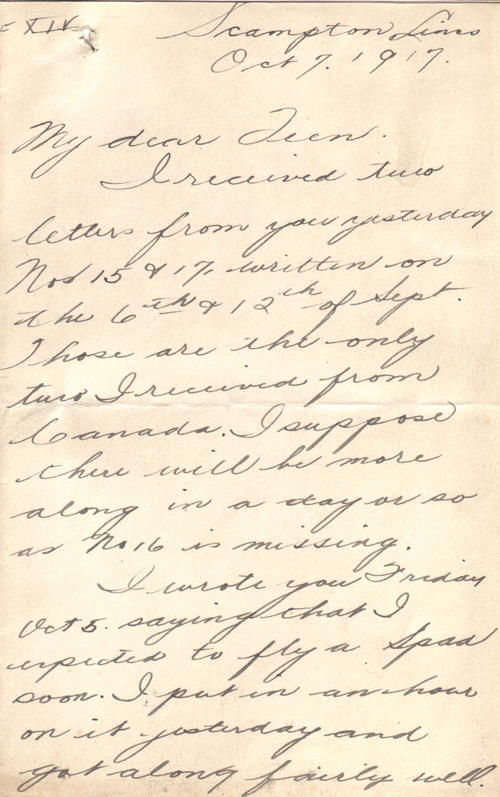 XIV
Scampton Lincs
Oct 7. 1917.
My dear Teen.
I received two
letters from you yesterday
Nos 15 & 17, written on
the 6th & 12th of Sept.
Those are the only
two I received from
Canada. I suppose
there will be more
along in a day or so
as No 16 is missing.
I wrote you Friday
Oct 5. saying that I
expected to fly a Spad
soon. I put in an hour
on it yesterday and
got along fairly well.